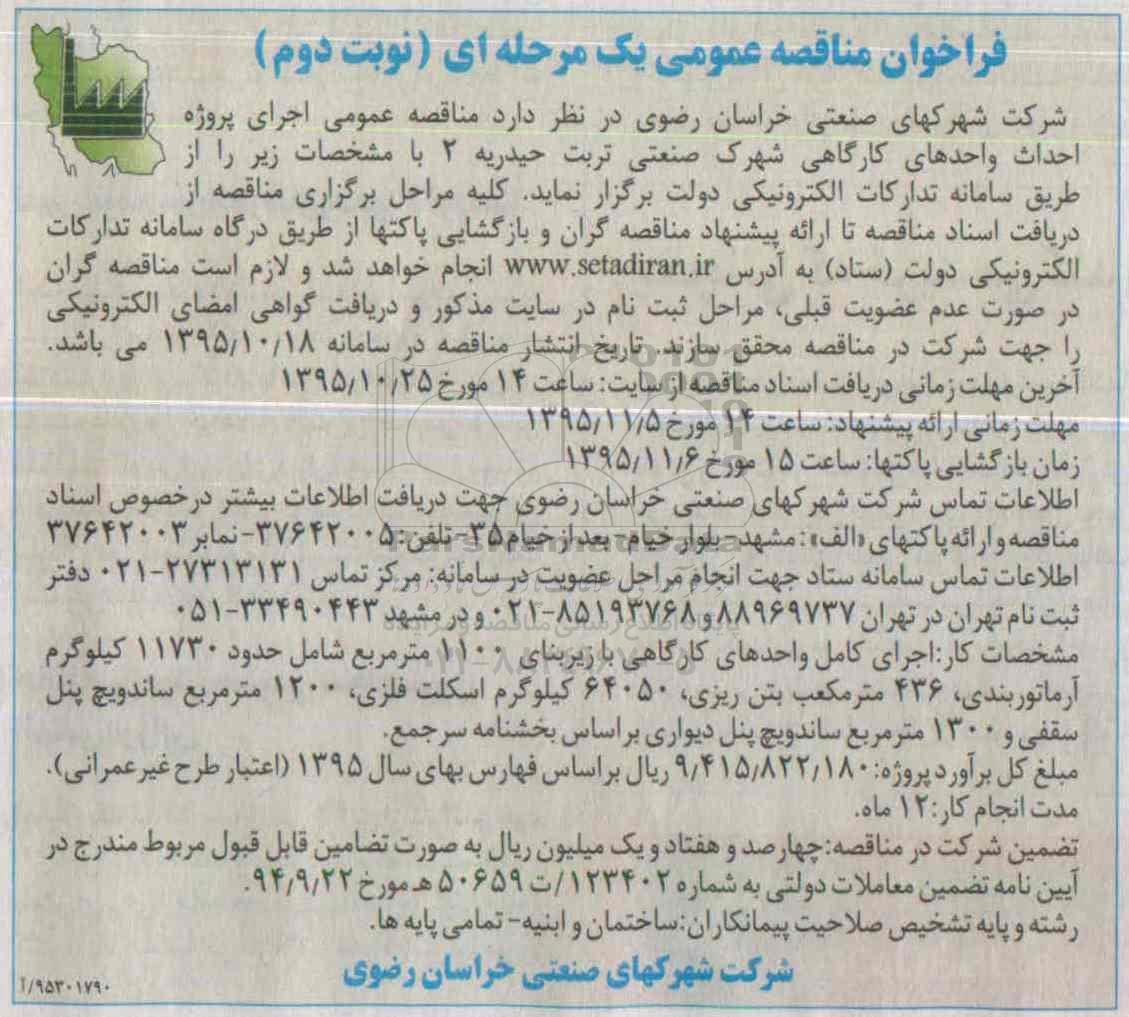 فراخوان مناقصه عمومی یک مرحله ای (نوبت دوم)
شرکت شهرکهای صنعتی خراسان رضوی در نظر دارد مناقصه عمومی اجرای پروژه
احداث واحدهای کارگاهی شهرک صنعتی تربت حیدریه ۲ با مشخصات زیر را از
طریق سامانه تدارکات الکترونیکی دولت برگزار نماید. کلیه مراحل برگزاری مناقصه از
دریافت اسناد مناقصه تا ارائه پیشنهاد مناقصه گران و بازگشایی پاکتها از طریق درگاه سامانه تدارکات
الکترونیکی دولت (ستاد) به آدرس www.setadiran.ir انجام خواهد شد و لازم است مناقصه گران
در صورت عدم عضویت قبلی، مراحل ثبت نام در سایت مذکور و دریافت گواهی امضای الکترونیکی
را جهت شرکت در مناقصه محقق سازند. تاریخ انتشار مناقصه در سامانه ۱۳۹۵/۱۰/۱۸ می باشد.
آخرین مهلت زمانی دریافت اسناد مناقصه از سایت: ساعت ۱۴ مورخ ۱۳۹۵/۱۰/۲۵
مهلت زمانی ارائه پیشنهاد: ساعت ۱۴ مورخ ۱۳۹۵/۱۱/۵
زمان بازگشایی پاکتها: ساعت ۱۵ مورخ ۱۳۹۵/۱۱/۶
اطلاعات تماس شرکت شهرکهای صنعتی خراسان رضوی جهت دریافت اطلاعات بیشتر درخصوص اسناد
مناقصه و ارائه پاکتهای «الف»: مشهد- بلوار خیام- بعد از خیام ۳۵- تلفن: ۳۷۶۴۲۰۰۵- نمابر ۳۷۶۴۲۰۰۳
اطلاعات تماس سامانه ستاد جهت انجام مراحل عضویت در سامانه: مرکز تماس ۲۷۳۱۳۱۳۱-۰۲۱ دفتر
ثبت نام تهران در تهران ۸۸۹۶۹۷۳۷ و ۸۵۱۹۳۷۶۸-۰۲۱ و در مشهد ۳۳۴۹۰۴۴۳-۰۵۱
مشخصات کار:اجرای کامل واحدهای کارگاهی با زیربنای ۱۱۰۰ مترمربع شامل حدود ۱۱۷۳۰ کیلوگرم
آرماتوربندی، ۴۳۶ مترمکعب بتن ریزی، ۶۴۰۵۰ کیلوگرم اسکلت فلزی، ۱۲۰۰ مترمربع ساندویچ پنل
سقفی و ۱۳۰۰ مترمربع ساندویچ پنل دیواری براساس بخشنامه سرجمع.
مبلغ کل برآورد پروژه: ۹/۴۱۵/۸۲۲/۱۸۰ ریال براساس فهارس بهای سال ۱۳۹۵ (اعتبار طرح غیرعمرانی).
مدت انجام کار:۱۲ ماه.
تضمین شرکت در مناقصه:چهارصد و هفتاد و یک میلیون ریال به صورت تضامین قابل قبول مربوط مندرج در
آیین نامه تضمین معاملات دولتی به شماره ۱۲۳۴۰۲/ت ۵۰۶۵۹ هـ مورخ ۹۴/۹/۲۲.
رشته و پایه تشخیص صلاحیت پیمانکاران:ساختمان و ابنیه- تمامی پایه ها.
شرکت شهرکهای صنعتی خراسان رضوی
۹۵۳۰۱۷۹۰/آ